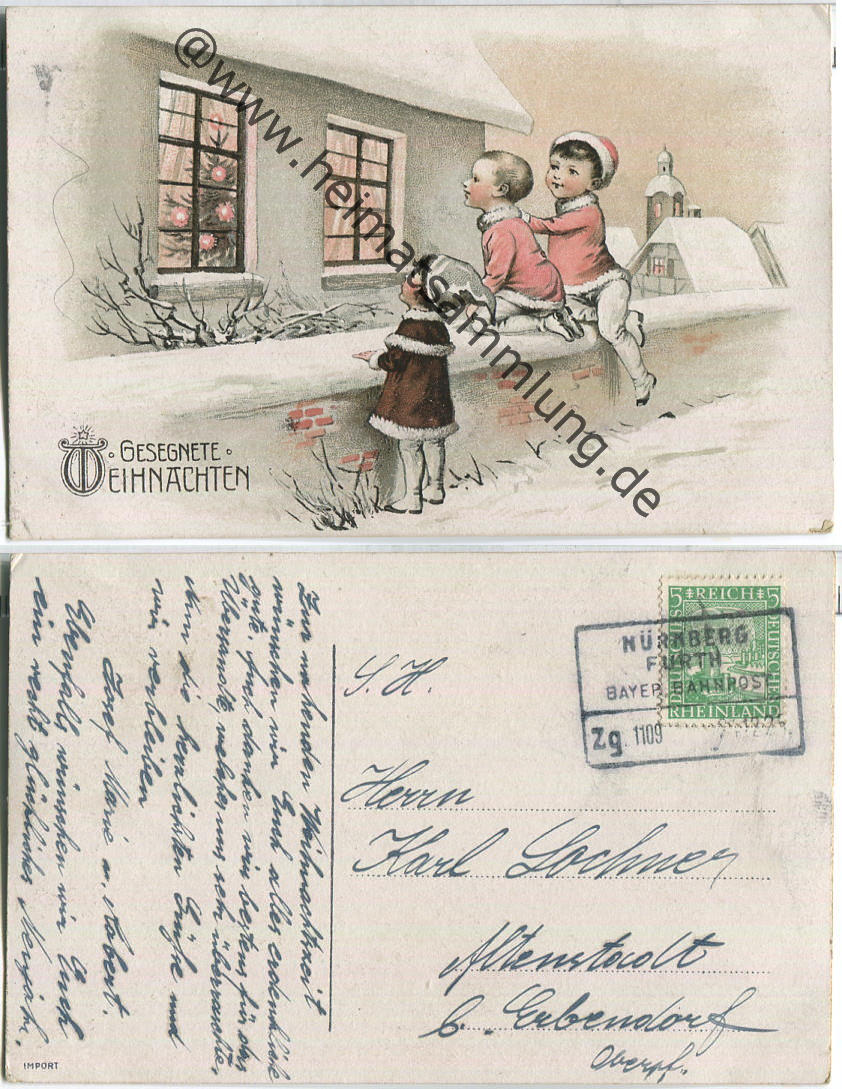 @www.heimatsammlung.de
GESEGNETE
WEIHNACHTEN
5 REICH 5
DEUTSCHES
DEUTSCHES
RHEINLAND
NÜRNBERG
FÜRTH
BAYER. BAHNPOST
Zg. 1109
S. H.
Herrn
Karl Lochner
Altenstadt
b. Erbendorf
Oberpf.
Zur nahenden Weihnachtszeit
wünschen wir Euch alles erdenklich
gute. Auch danken wir bestens für das
Übersandte, welches uns sehr überraschte.
Nun die herzlichsten Grüße und
wir verbleiben
Josef Marie u. Robert.
Ebenfalls wünschen wir Euch
ein recht glückliches Neujahr.
IMPORT